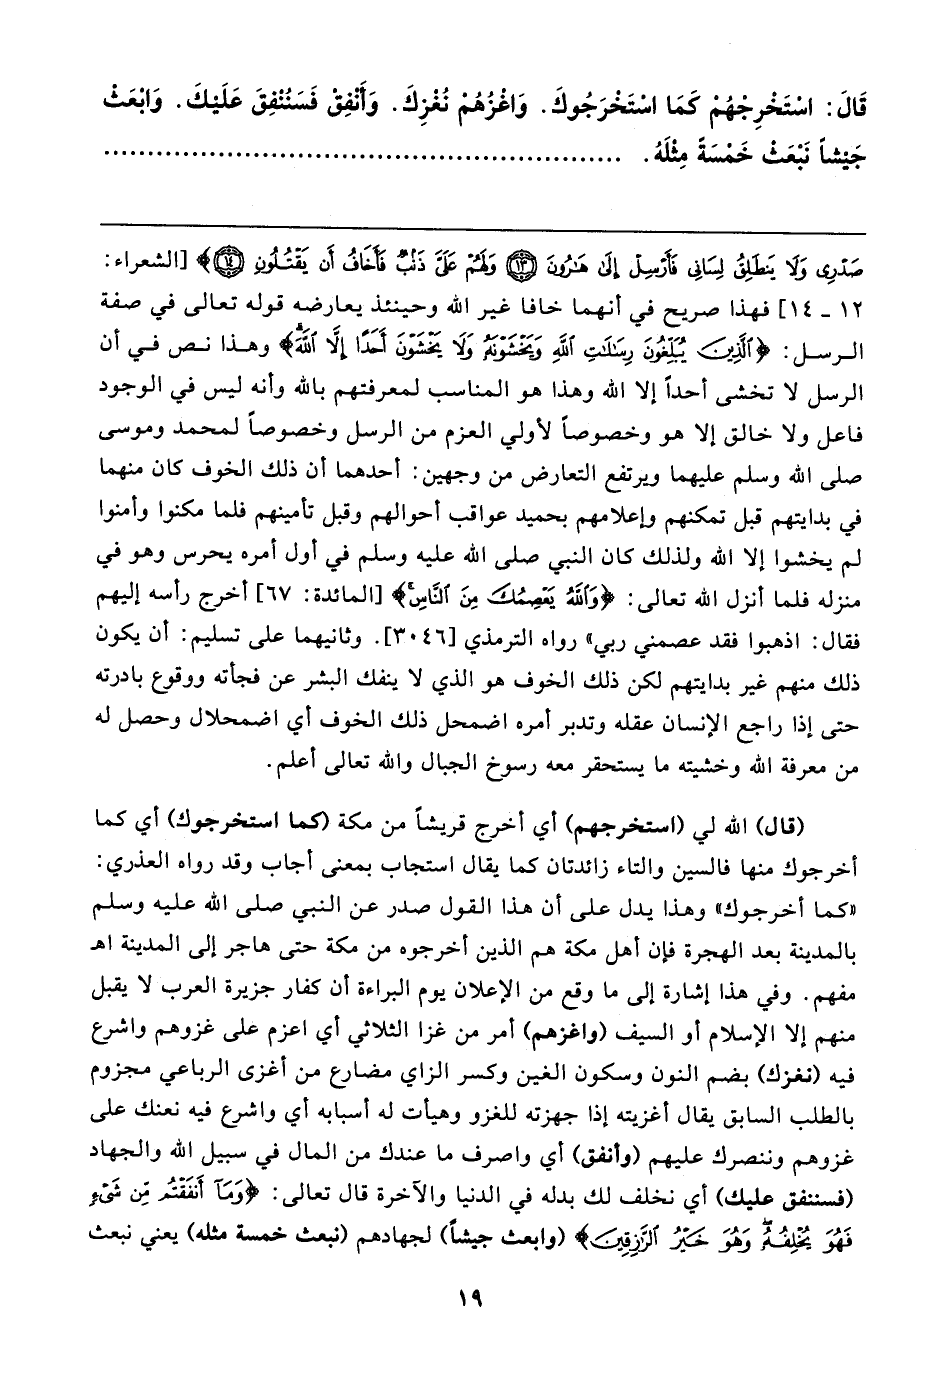 قَالَ: اسْتَخْرِجْهُمْ كَمَا اسْتَخْرَجُوكَ. وَاغْزُهُمْ نُغْزِكَ. وَأَنْفِقْ فَسَنُنْفِقَ عَلَيْكَ. وَابْعَثْ
جَيْشاً نَبْعَثْ خَمْسَةً مِثْلَهُ. ......................................................
صَدْرِى وَلَا يَنطَلِقُ لِسَانِى فَأَرْسِلْ إِلَىٰ هَـٰرُونَ ﴿١٣﴾ وَلَهُمْ عَلَىَّ ذَنۢبٌ فَأَخَافُ أَن يَقْتُلُونِ ﴿١٤﴾﴾ [الشعراء:
١٢ - ١٤] فهذا صريح في أنهما خافا غير الله وحينئذ يعارضه قوله تعالى في صفة
الرسل: ﴿ٱلَّذِينَ يُبَلِّغُونَ رِسَـٰلَـٰتِ ٱللَّهِ وَيَخْشَوْنَهُۥ وَلَا يَخْشَوْنَ أَحَدًا إِلَّا ٱللَّهَۗ﴾ وهذا نص في أن
الرسل لا تخشى أحداً إلا الله وهذا هو المناسب لمعرفتهم بالله وأنه ليس في الوجود
فاعل ولا خالق إلا هو وخصوصاً لأولي العزم من الرسل وخصوصاً لمحمد وموسى
صلى الله وسلم عليهما ويرتفع التعارض من وجهين: أحدهما أن ذلك الخوف كان منهما
في بدايتهم قبل تمكنهم وإعلامهم بحميد عواقب أحوالهم وقبل تأمينهم فلما مكنوا وأمنوا
لم يخشوا إلا الله ولذلك كان النبي صلى الله عليه وسلم في أول أمره يحرس وهو في
منزله فلما أنزل الله تعالى: ﴿وَٱللَّهُ يَعْصِمُكَ مِنَ ٱلنَّاسِۗ﴾ [المائدة: ٦٧] أخرج رأسه إليهم
فقال: اذهبوا فقد عصمني ربي» رواه الترمذي [٣٠٤٦]. وثانيهما على تسليم: أن يكون
ذلك منهم غير بدايتهم لكن ذلك الخوف هو الذي لا ينفك البشر عن فجأته ووقوع بادرته
حتى إذا راجع الإنسان عقله وتدبر أمره اضمحل ذلك الخوف أي اضمحلال وحصل له
من معرفة الله وخشيته ما يستحقر معه رسوخ الجبال والله تعالى أعلم.
(قال) الله لي (استخرجهم) أي أخرج قريشاً من مكة (كما استخرجوك) أي كما
أخرجوك منها فالسين والتاء زائدتان كما يقال استجاب بمعنى أجاب وقد رواه العذري:
«كما أخرجوك» وهذا يدل على أن هذا القول صدر عن النبي صلى الله عليه وسلم
بالمدينة بعد الهجرة فإن أهل مكة هم الذين أخرجوه من مكة حتى هاجر إلى المدينة اهـ
مفهم. وفي هذا إشارة إلى ما وقع من الإعلان يوم البراءة أن كفار جزيرة العرب لا يقبل
منهم إلا الإسلام أو السيف (واغزهم) أمر من غزا الثلاثي أي اعزم على غزوهم واشرع
فيه (نغزك) بضم النون وسكون الغين وكسر الزاي مضارع من أغزى الرباعي مجزوم
بالطلب السابق يقال أغزيته إذا جهزته للغزو وهيأت له أسبابه أي واشرع فيه نعنك على
غزوهم وننصرك عليهم (وأنفق) أي واصرف ما عندك من المال في سبيل الله والجهاد
(فسننفق عليك) أي نخلف لك بدله في الدنيا والآخرة قال تعالى: ﴿وَمَآ أَنفَقْتُم مِّن شَىْءٍ
فَهُوَ يُخْلِفُهُۥۖ وَهُوَ خَيْرُ ٱلرَّٰزِقِينَ﴾ (وابعث جيشاً) لجهادهم (نبعث خمسة مثله) يعني نبعث
١٩